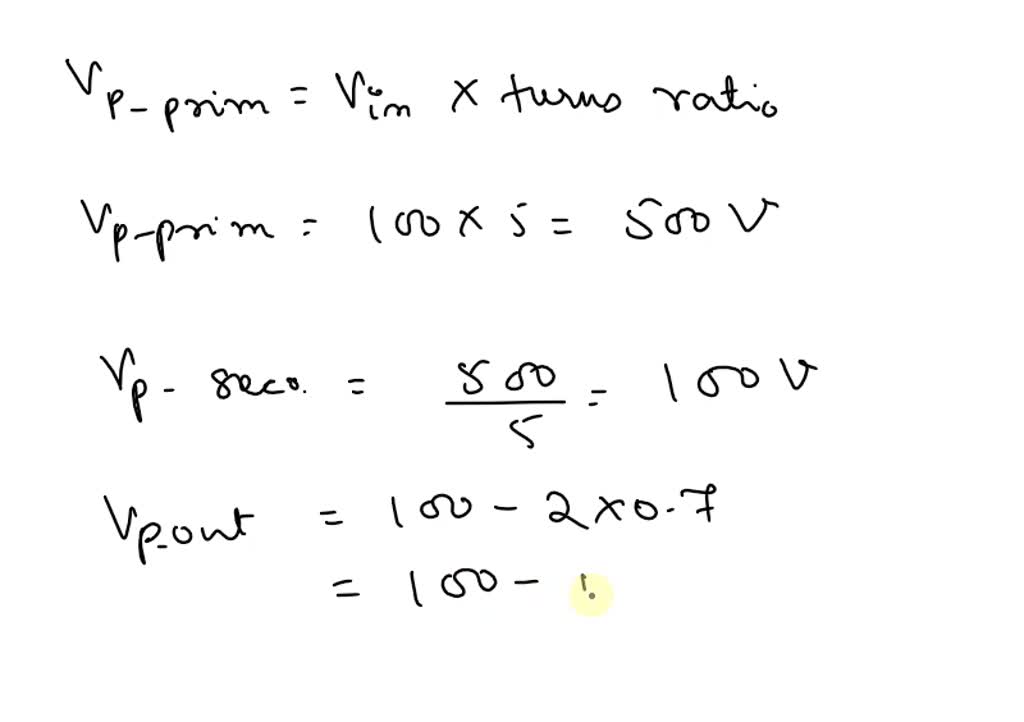 Vp-prim = Vin × turns ratio
Vp-prim = 100 × 5 = 500 V
Vp- seco. = 500/5 = 100 V
Vp-out = 100 - 2 × 0.7
= 100 - 1.